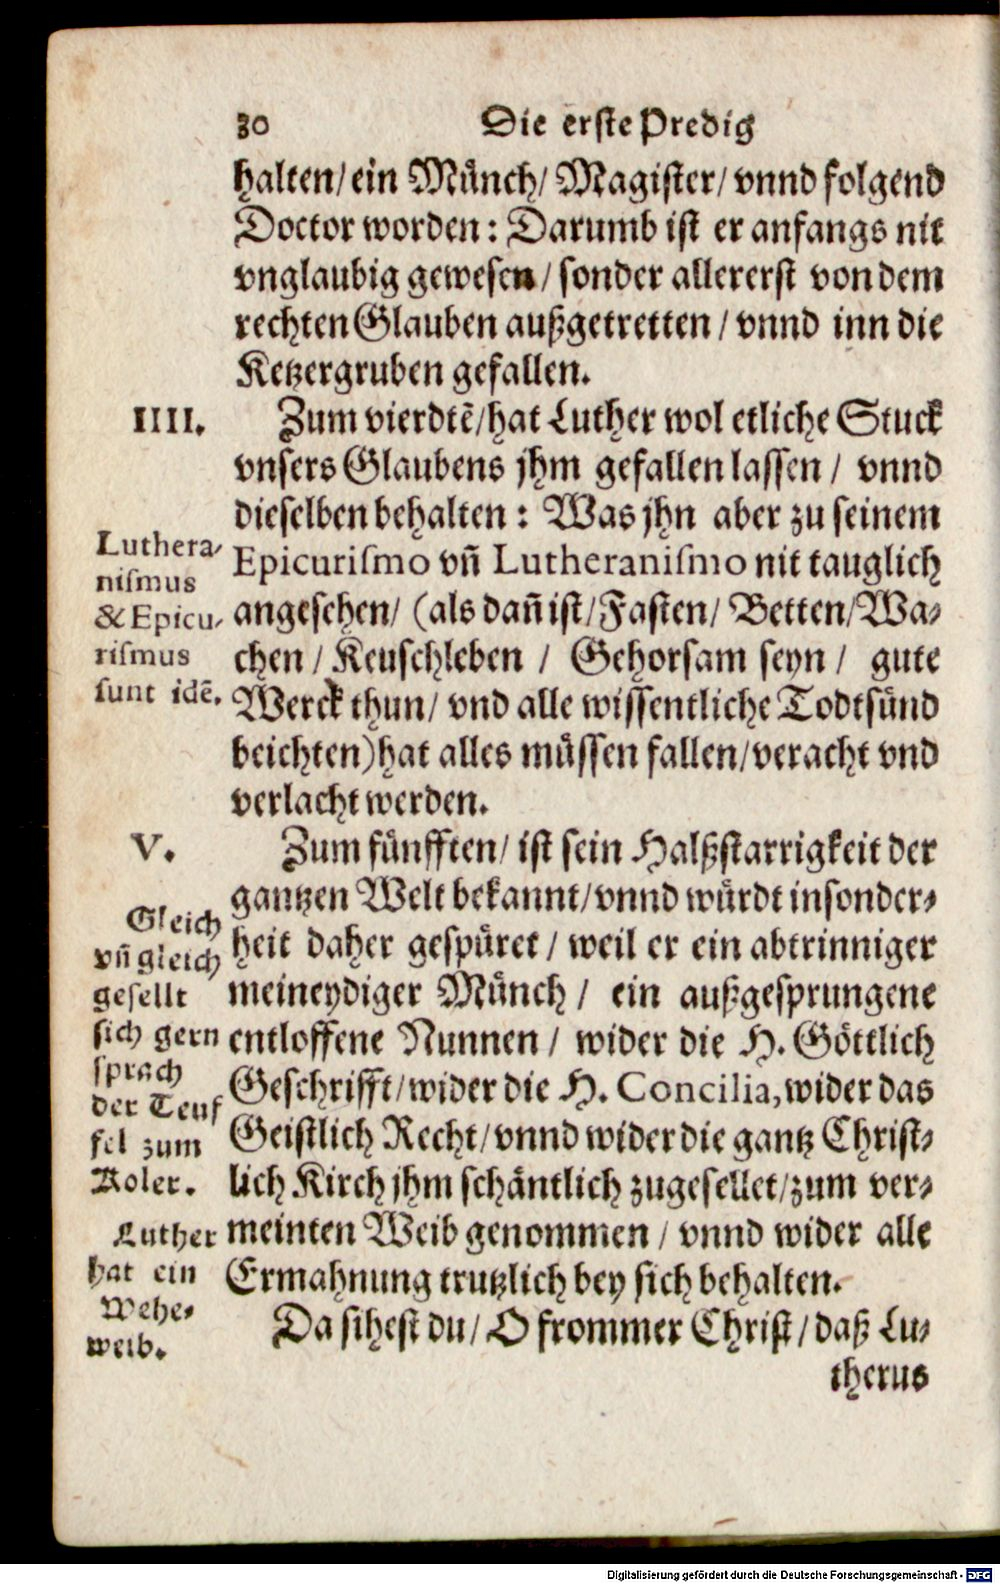 30 Die erste Predig
halten/ ein Münch/ Magister/ vnnd folgend
Doctor worden: Darumb ist er anfangs nit
vnglaubig gewesen/ sonder allererst von dem
rechten Glauben außgetretten/ vnnd inn die
Ketzergruben gefallen.
IIII. Zum vierdtē/ hat Luther wol etliche Stuck
vnsers Glaubens jhm gefallen lassen/ vnnd
dieselben behalten: Was jhn aber zu seinem
Epicurismo vn̄ Lutheranismo nit tauglich
angesehen/ (als dan̄ ist/ Fasten/ Betten/ Wa-
chen/ Keuschleben/ Gehorsam seyn/ gute
Werck thun/ vnd alle wissentliche Todtsünd
beichten) hat alles müssen fallen/ veracht vnd
verlacht werden.
Luthera-
nismus
& Epicu-
rismus
sunt idē.
V. Zum fünfften/ ist sein Halßstarrigkeit der
gantzen Welt bekannt/ vnnd würdt insonder-
heit daher gespüret/ weil er ein abtrinniger
meineydiger Münch/ ein außgesprungene
entloffene Nunnen/ wider die H. Göttlich
Geschrifft/ wider die H. Concilia, wider das
Geistlich Recht/ vnnd wider die gantz Christ-
lich Kirch jhm schäntlich zugesellet/ zum ver-
meinten Weib genommen/ vnnd wider alle
Ermahnung trutzlich bey sich behalten.
Gleich
vn̄ gleich
gesellt
sich gern
sprach
der Teuf
fel zum
Koler.
Luther
hat ein
Wehe-
weib.
Da sihest du/ O frommer Christ/ daß Lu-
therus
Digitalisierung gefördert durch die Deutsche Forschungsgemeinschaft - DFG